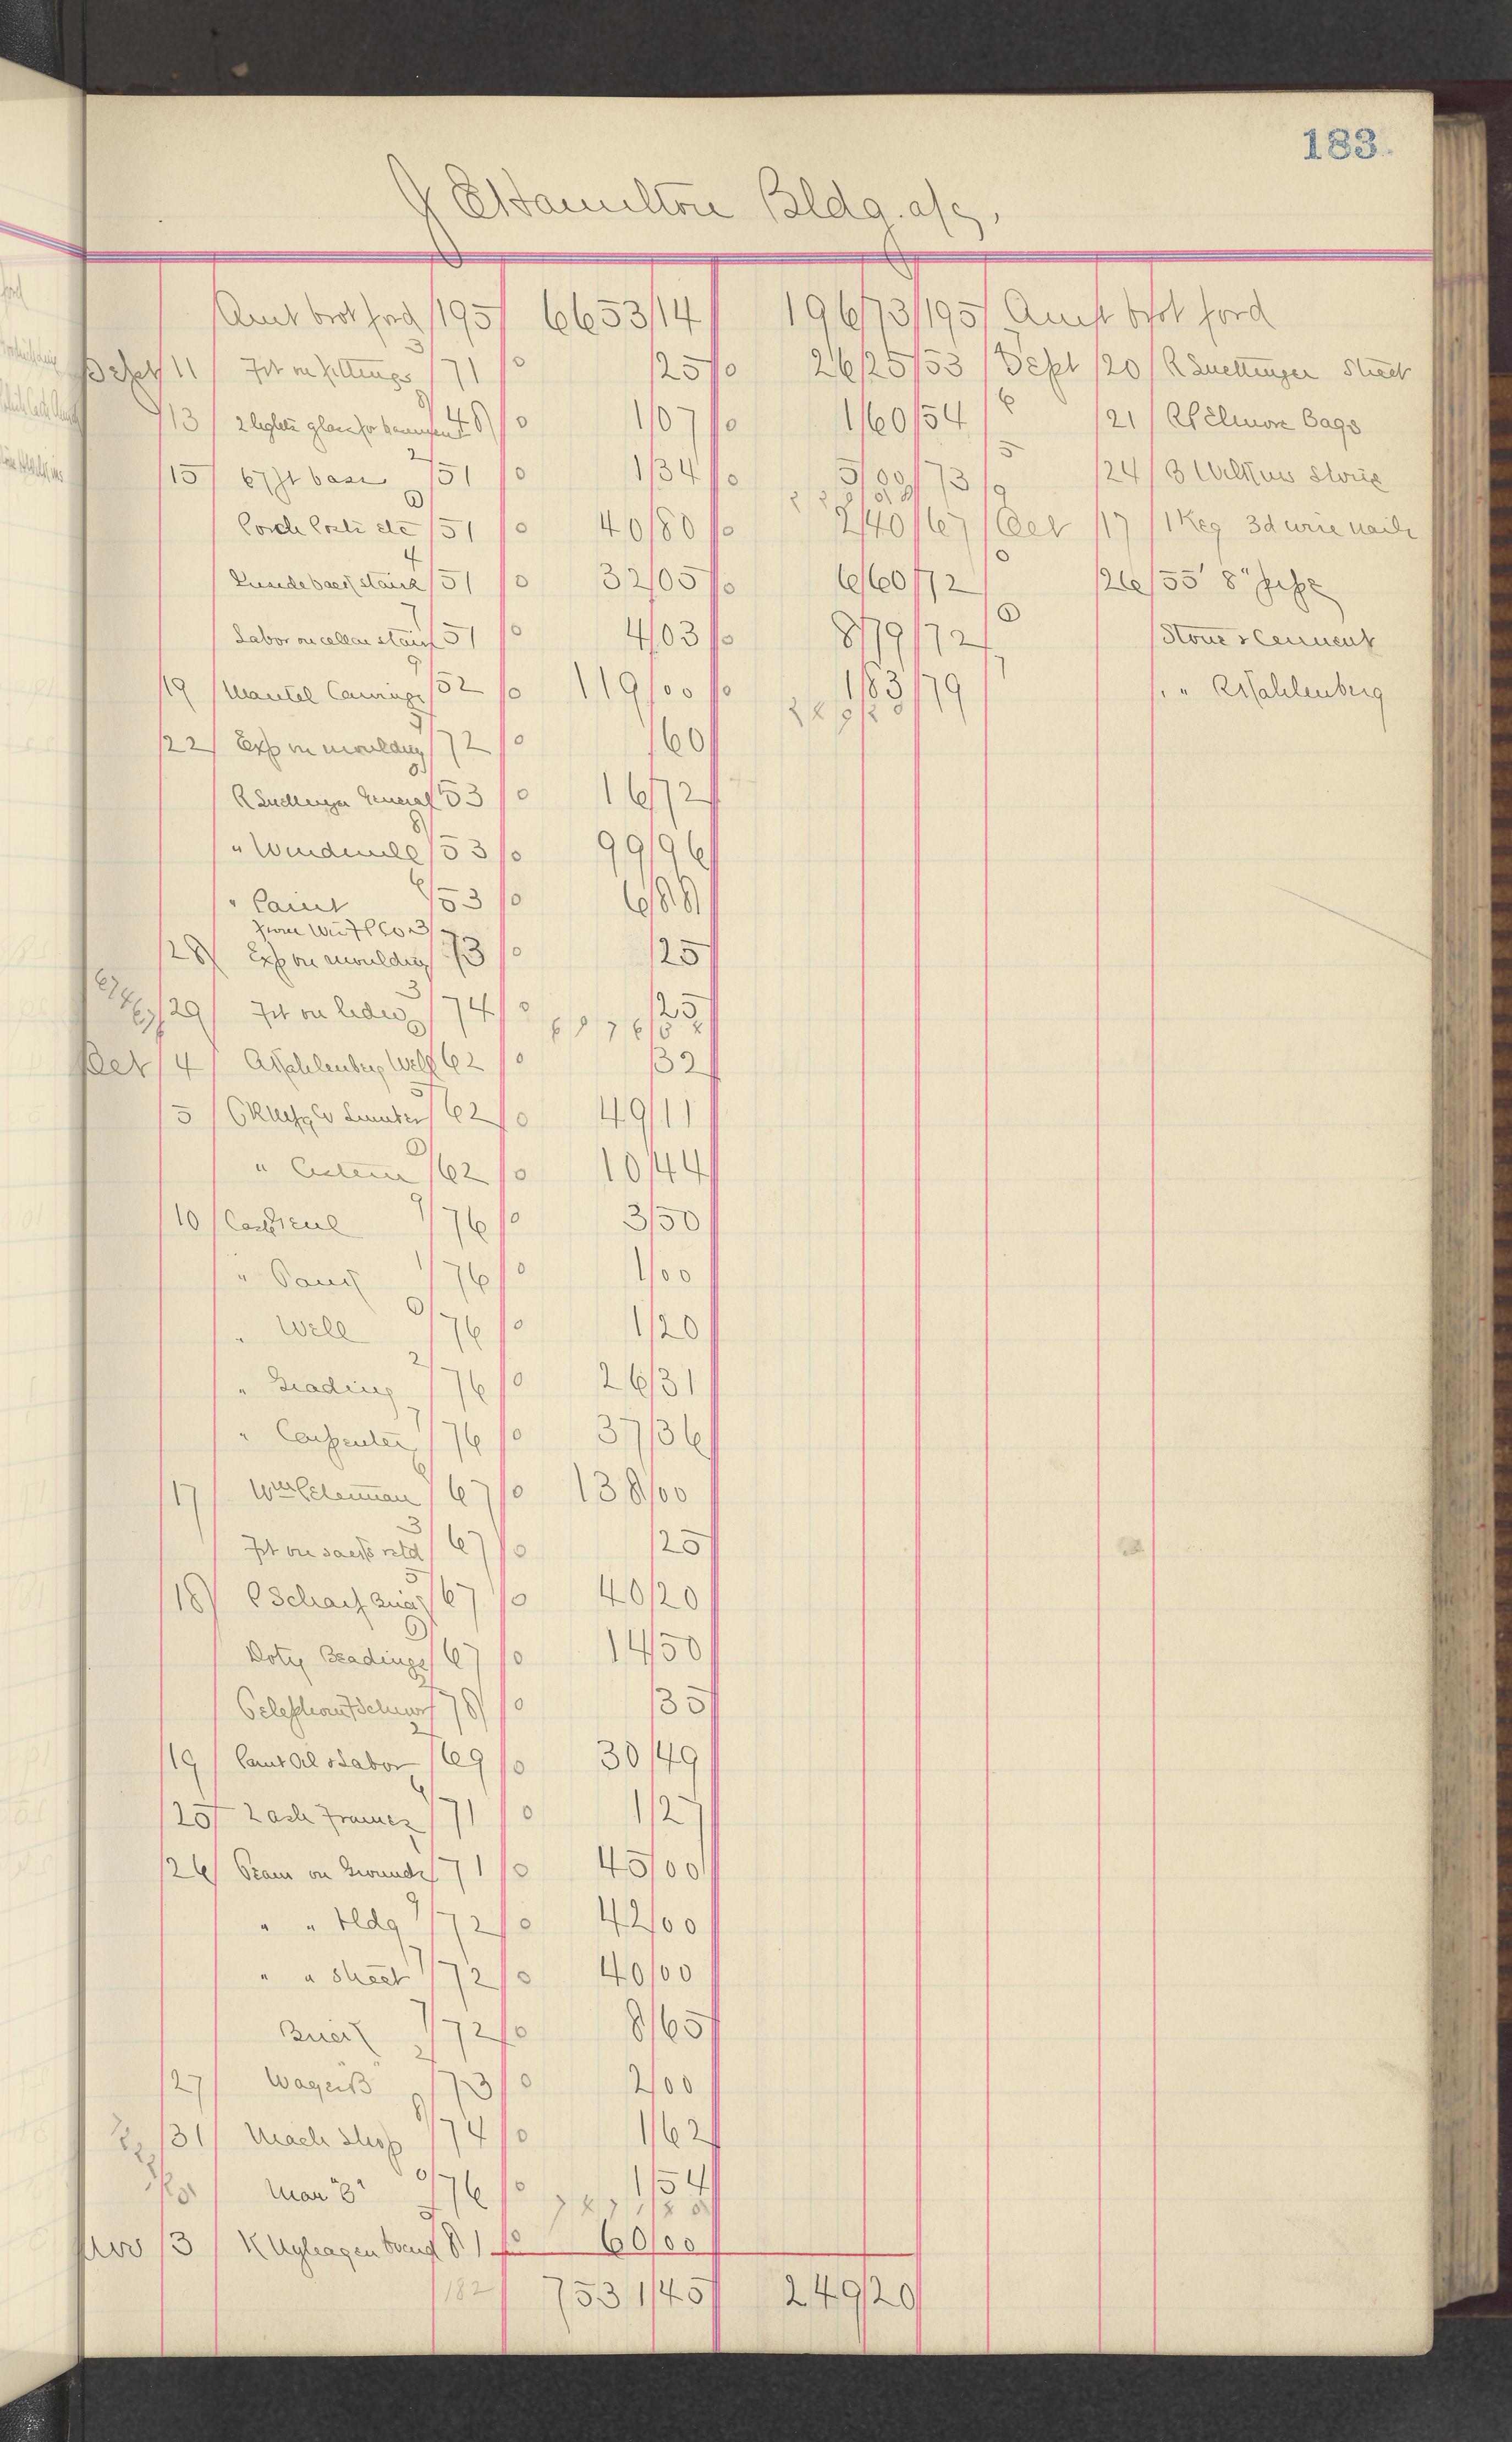 183
J E Hamilton Bldg. a/c,
Amt brot ford 195 6653 14 196 73 195 Amt brot ford
Sept 11 Frt on fittings 3 71 0 25 0 26 25 53 Sept 20 R Suettinger Street
13 2 lights glass for basement 8 48 0 1 07 0 1 60 54 6 21 R P Elmore Bags
15 67 ft base 2 51 0 1 34 0 5 00 73 5 24 B Wilkins Stone
Porch Posts etc 0 51 0 40 80 0 2 40 67 9 Oct 17 1 Keg 3d wire nails
back stairs 4 51 0 32 05 0 6 60 72 0 26 55' 8" pipe
Labor on cellar stairs 7 51 0 4 03 0 8 79 72 0 Stone & Cement
19 Mantel Carvings 9 52 0 119 00 0 1 83 79 7 " " R Kahlenberg
22 Exp on moulding 3 72 0 60
R Suettinger General 0 53 0 16 72
" Windmill 8 53 0 99 96
" Paint 6 53 0 6 88
from
28 Exp on moulding 3 73 0 25
29 Frt on 3 74 0 25
6 8 7 6 5 8
Oct 4 Kahlenberg Well 0 62 0 32
5 Mfg Co Lumber 5 62 0 49 11
" Cistern 0 62 0 10 44
10 Cash 9 76 0 3 50
" Paint 1 76 0 1 00
" Well 0 76 0 1 20
" Grading 2 76 0 26 31
" Carpenter 7 76 0 37 36
17 Wm 6 67 0 138 00
Frt on sacks retd 3 67 0 25
18 P Scharf Brick 5 67 0 40 20
Doty Beadings 0 67 0 14 50
Telephone 2 78 0 35
19 Paint Oil & Labor 2 69 0 30 49
25 2 ash Frames 6 71 0 1 27
26 Team on Grounds 1 71 0 45 00
" " Bldg 9 72 0 42 00
" " Street 7 72 0 40 00
Brick 7 72 0 8 65
27 Wages "B" 2 73 0 2 00
31 Mach Shop 8 74 0 1 62
Man "B" 0 76 0 1 54
Nov 3 81 0 60 00
182 7531 45 249 20